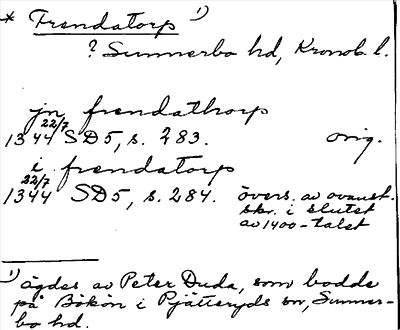 * Frendatorp 1)
? Sunnerbo hd, Kronob. l.
jn frendathorp
1344 22/7 SD5, s. 283. orig.
i frendatorp
1344 22/7 SD5, s. 284. övers. av ovanst.
skr. i slutet
av 1400-talet
1) ägdes av Peter Duda, som bodde
på Bökön i Pjätteryds sn, Sunner-
bo hd.